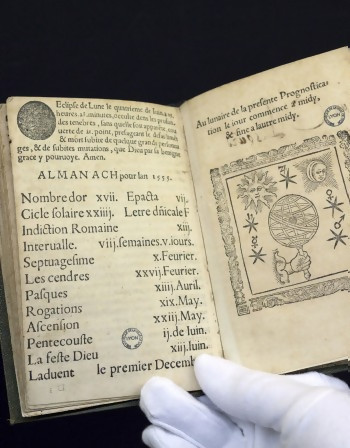 Eclipse de Lune le
heures
des tenebres, sans qu'elle soit
uerte de 21. point, presageant le
& mort subite de quelque grands personna
ges, & de subites mutations, que Dieu par sa benigne
grace y pouruoye. Amen.
ALMANACH pour lan 1555.
Nombre dor xvii. Epacta vij.
Cicle solaire xxiij. Letre dñicale F
Indiction Romaine xiij.
Interualle. viij. semaines. v. iours.
Septuagesime x. Feurier.
Les cendres xxvij. Feurier.
Pasques xiiij. Auril.
Rogations xix. May.
Ascension xxiij. May.
Pentecouste ij. de Iuin.
La feste Dieu xiij. Iuin.
Laduent le premier Decemb
LYON
Au lunaire de la presente Prognostica
tion le iour commence a midy,
& fine a lautre midy.
LYON